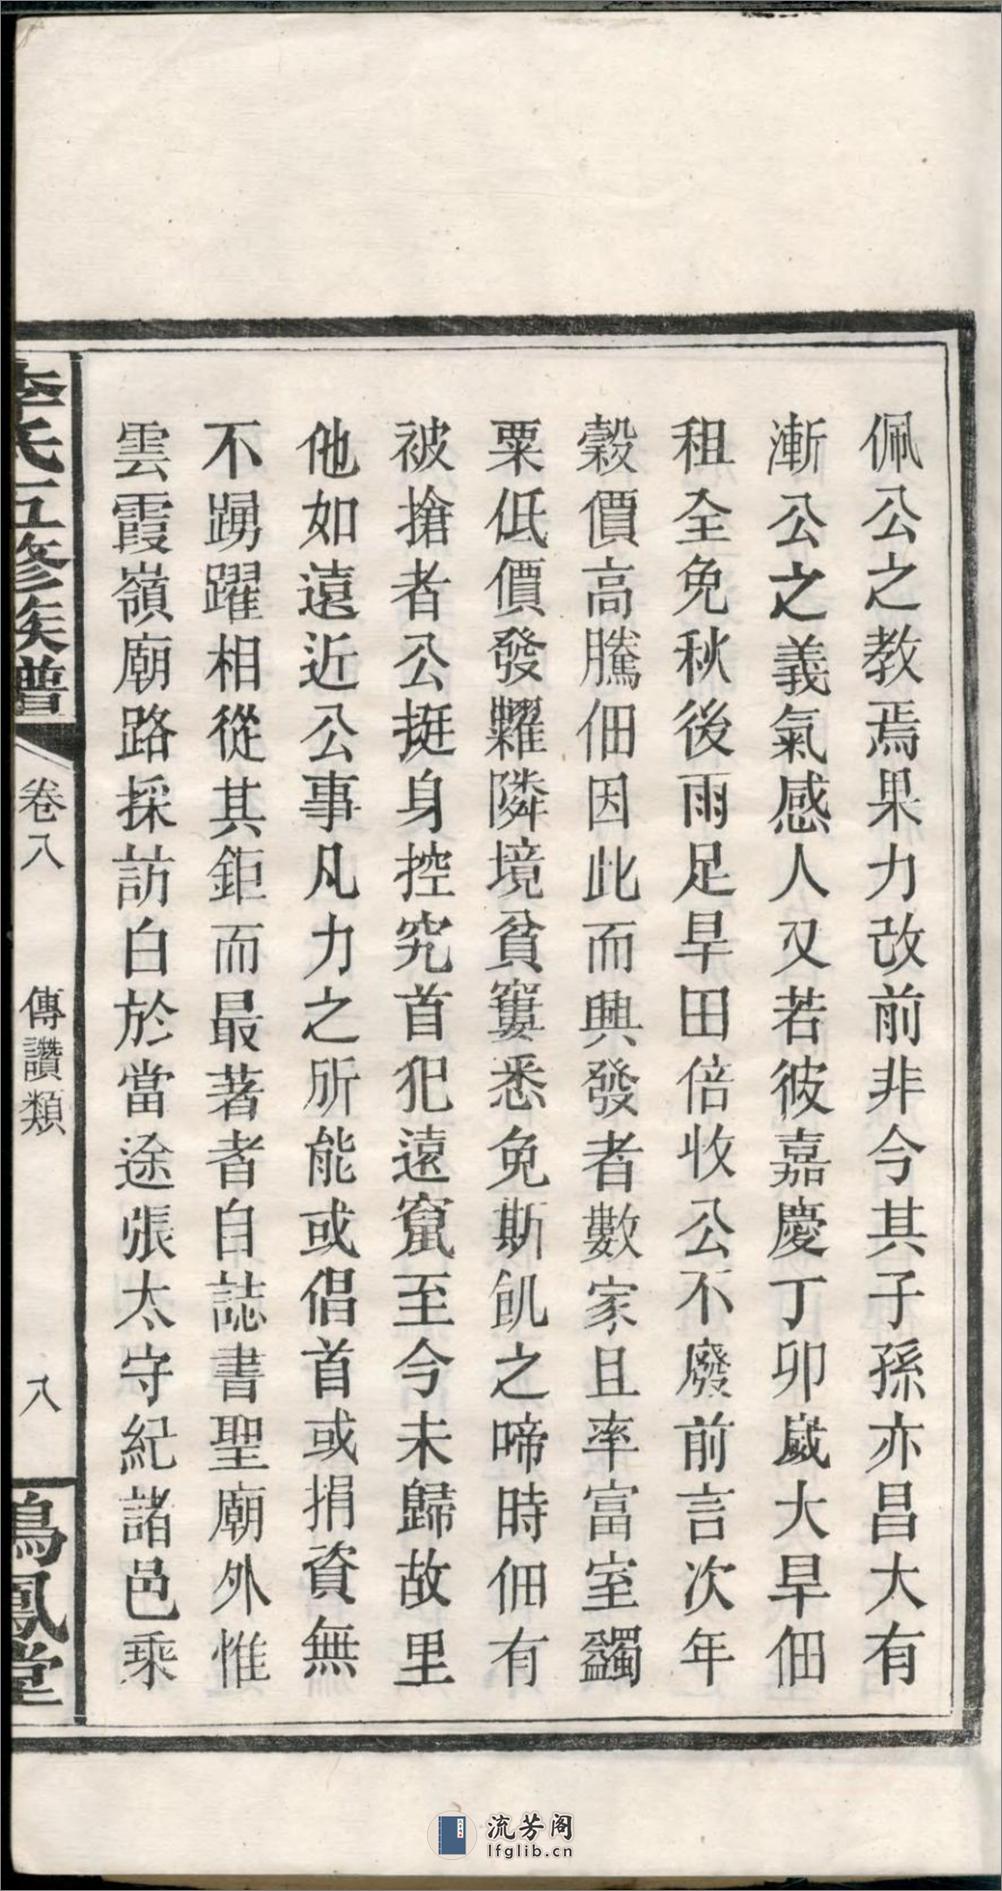 佩公之教焉果力改前非今其子孫亦昌大有
漸公之義氣感人又若彼嘉慶丁卯歲大旱佃
租全免秋後雨足旱田倍收公不廢前言次年
穀價高騰佃因此而興發者數家且率富室蠲
粟低價發糶隣境貧窶悉免斯飢之啼時佃有
被搶者公挺身控究首犯遠竄至今未歸故里
他如遠近公事凡力之所能或倡首或捐資無
不踴躍相從其鉅而最著者自誌書聖廟外惟
雲霞嶺廟路採訪白於當途張太守紀諸邑乘
李氏五修族譜
卷八
傳讚類
八
鳴鳳堂
流芳阁
lfglib.cn